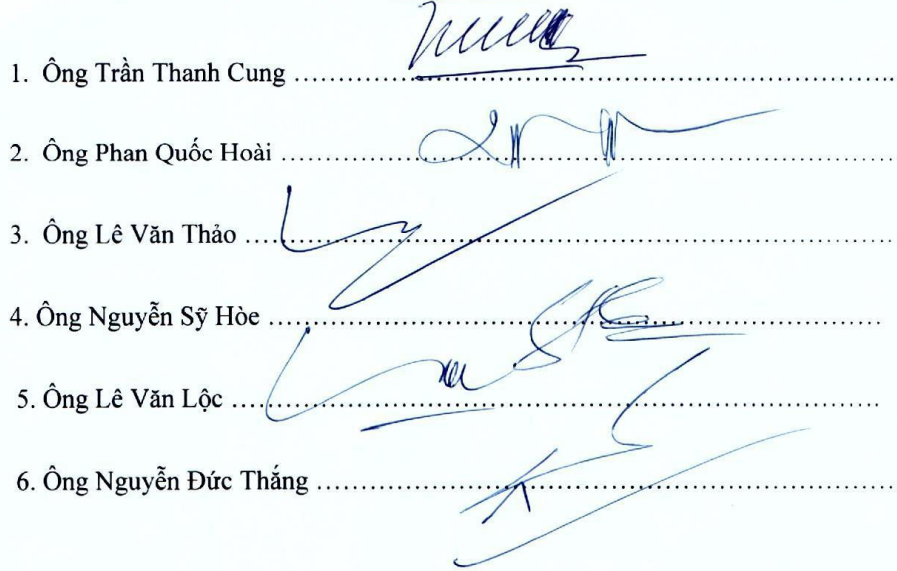 1. Ông Trần Thanh Cung ...........................................................................
2. Ông Phan Quốc Hoài ...........................................................................
3. Ông Lê Văn Thảo ...........................................................................
4. Ông Nguyễn Sỹ Hòe ...........................................................................
5. Ông Lê Văn Lộc ...........................................................................
6. Ông Nguyễn Đức Thắng ...........................................................................